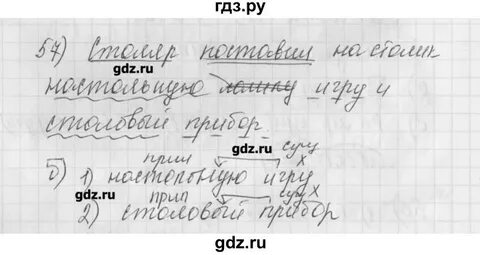 гдз.ру
57) Столяр поставил на столик
гдз.ru
настольную лампу игру и
столовый прибор.
гдз.ru
прил сущ
Б) 1) настольную игру
прил сущ
2) столовый прибор
gdz.ru